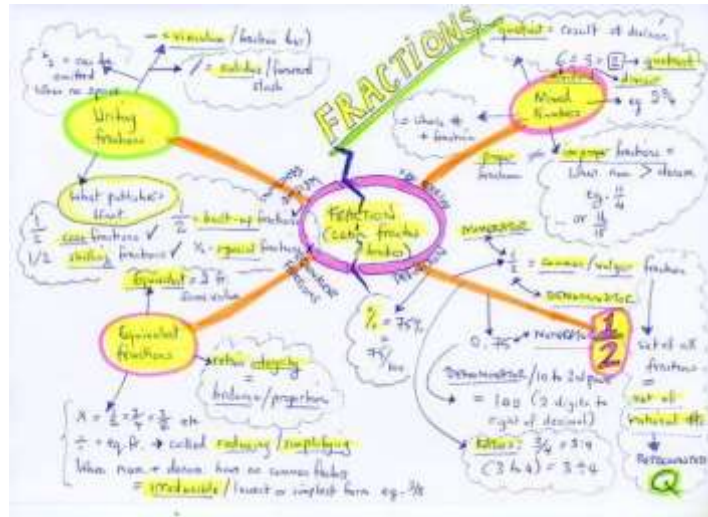 FRACTIONS
— = vinculum / fraction bar)
/ = solidus / forward
slash
= can be
omitted
When no space
Writing
fractions
What publishers
Want
1/2 case fractions ✓
1/2 = built-up fractions
1/2 shilling fractions ✓
½ = special fractions
Equivalent =
Same value
Equivalent
fractions
retain integrity
=
balance / proportions
X = 1/2 = 2/4 = 3/6 etc
÷ = eq. fr. → called reducing / simplifying
When num + denom have no common factor
= irreducible / lowest or simplest form eg. 3/8
FRACTION
quotient = result of division
quotient
divisor
Mixed
Numbers
eg 2¾
= Whole #
+ fraction
proper
fraction
improper fractions =
When num > denom
eg. 11/4
NUMERATOR
1/2 = common / vulgar fraction
DENOMINATOR
1/2
= 75%
=
75/100
0.75
DENOMINATOR / 10 to 2nd power
= 100 (2 digits to
right of decimal)
Ratios: 3/4 = 3:4
(3 to 4) = 3 ÷ 4
Set of all
fractions
=
set of
rational #s
REPRESENTED
Q